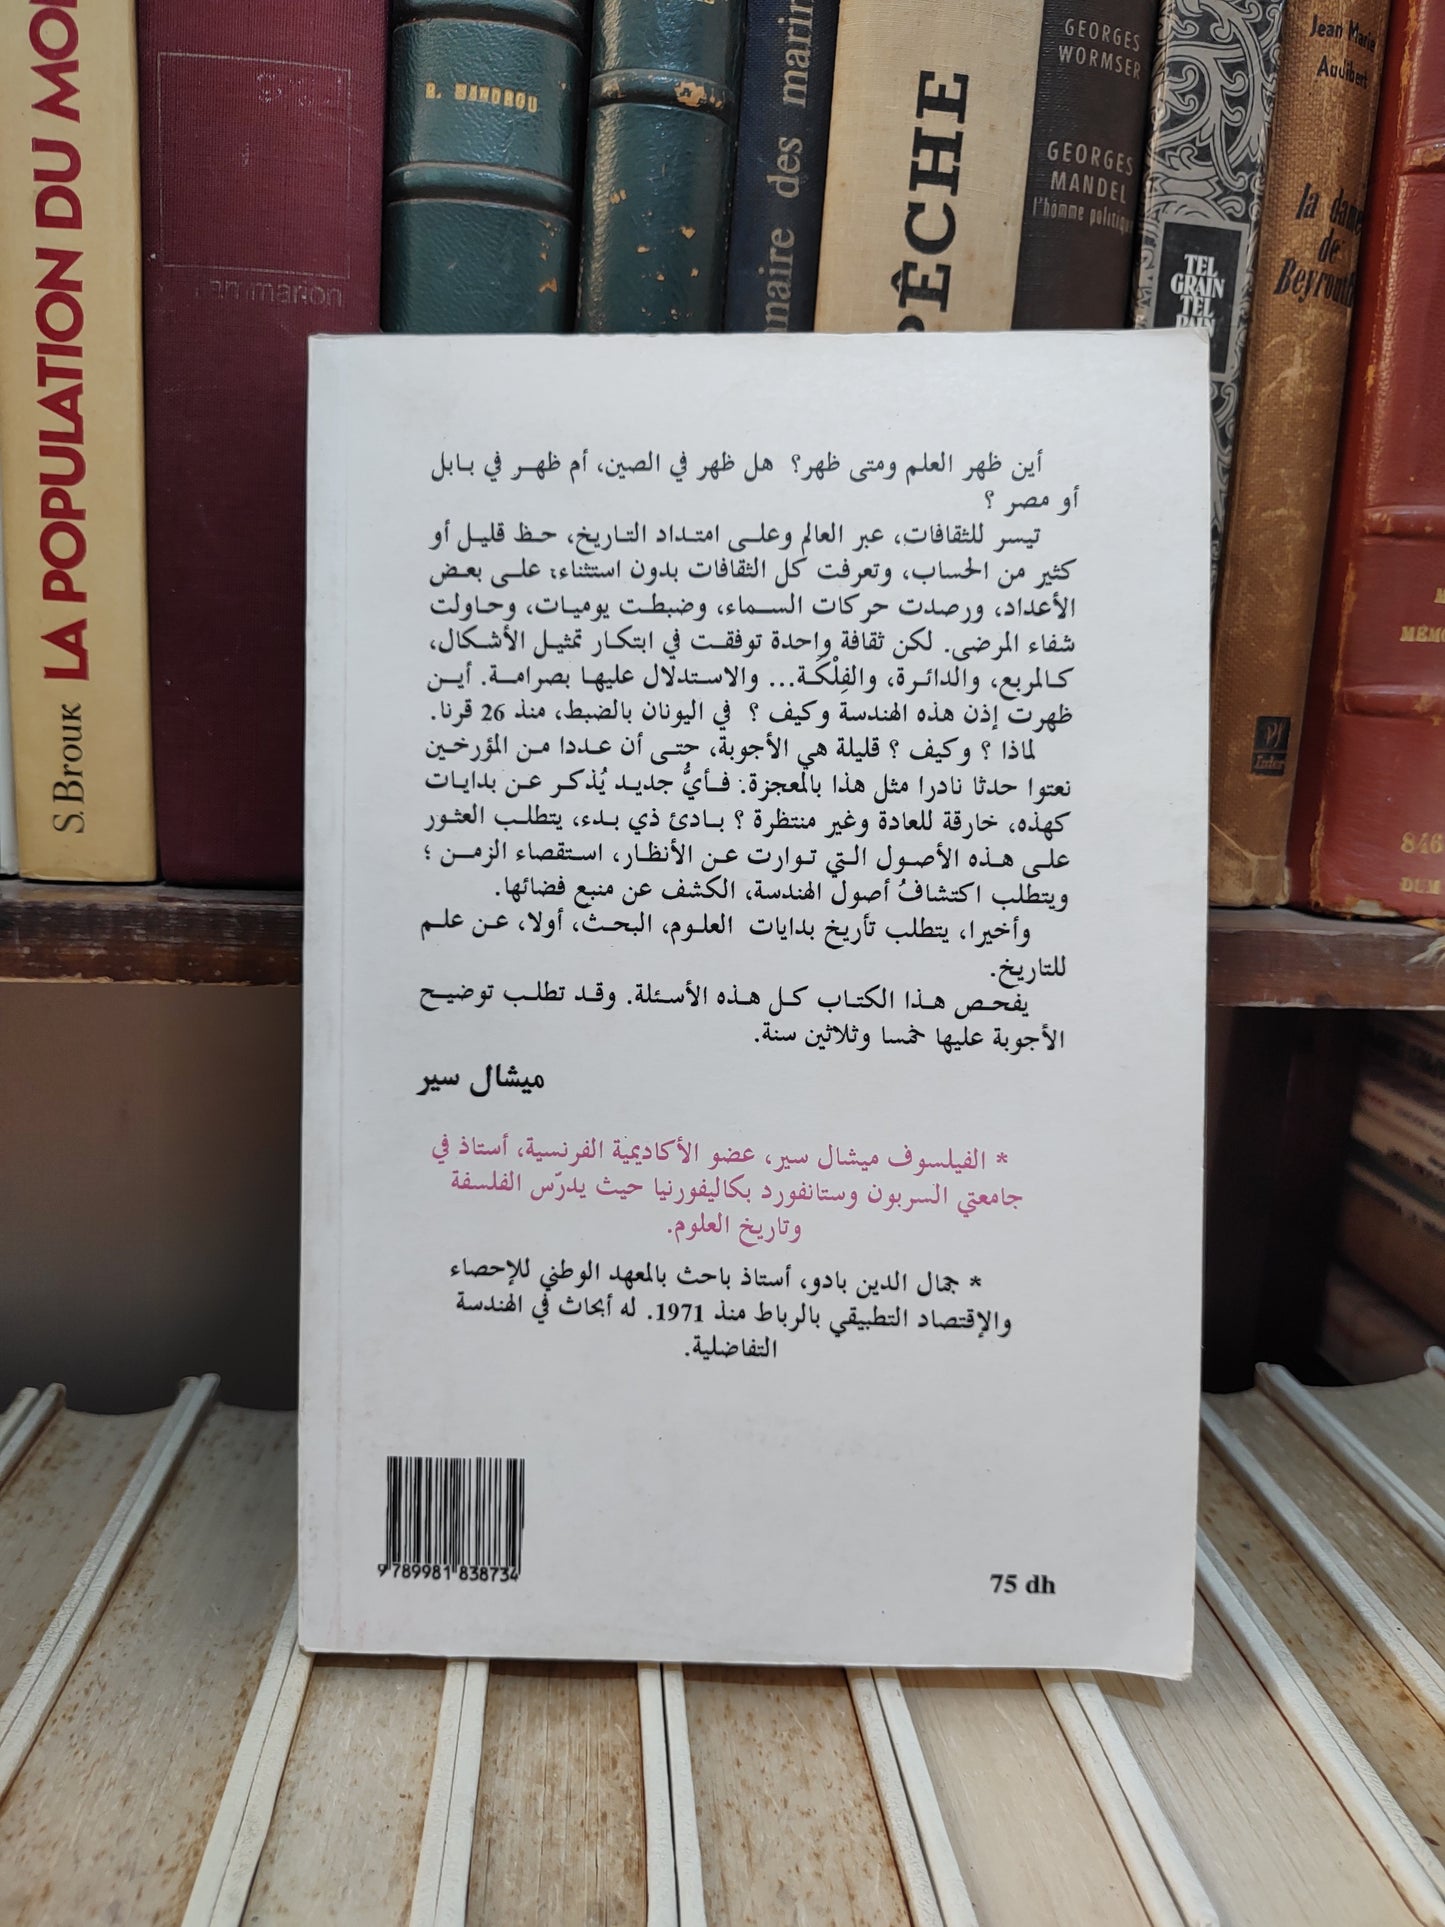 LA POPULATION DU
S. Brouk
R. MANDROU
des
PÊCHE
GEORGES
WORMSER
GEORGES
MANDEL
l'homme politique
TEL
GRAIN
TEL
PAIN
Jean Marie
Audibert
la dame
de
Beyrouth
أين ظهر العلم ومتى ظهر؟ هل ظهر في الصين، أم ظهر في بابل
أو مصر ؟
تيسر للثقافات، عبر العالم وعلى امتداد التاريخ، حظ قليل أو
كثير من الحساب، وتعرفت كل الثقافات بدون استثناء: على بعض
الأعداد، ورصدت حركات السماء، وضبطت يوميات، وحاولت
شفاء المرضى. لكن ثقافة واحدة توفقت في ابتكار تمثيل الأشكال،
كالمربع، والدائرة، والفِلْكَة... والاستدلال عليها بصرامة. أين
ظهرت إذن هذه الهندسة وكيف ؟ في اليونان بالضبط، منذ 26 قرنا.
لماذا ؟ وكيف ؟ قليلة هي الأجوبة، حتى أن عددا من المؤرخين
نعتوا حدثا نادرا مثل هذا بالمعجزة. فأيُّ جديد يُذكر عن بدايات
كهذه، خارقة للعادة وغير منتظرة ؟ بادئ ذي بدء، يتطلب العثور
على هذه الأصول التي توارت عن الأنظار، استقصاء الزمن ؛
ويتطلب اكتشافُ أصول الهندسة، الكشف عن منبع فضائها.
وأخيرا، يتطلب تأريخ بدايات العلوم، البحث، أولا، عن علم
للتاريخ.
يفحص هذا الكتاب كل هذه الأسئلة. وقد تطلب توضيح
الأجوبة عليها خمسا وثلاثين سنة.
ميشال سير
* الفيلسوف ميشال سير، عضو الأكاديمية الفرنسية، أستاذ في
جامعتي السربون وستانفورد بكاليفورنيا حيث يدرّس الفلسفة
وتاريخ العلوم.
* جمال الدين بادو، أستاذ باحث بالمعهد الوطني للإحصاء
والإقتصاد التطبيقي بالرباط منذ 1971. له أبحاث في الهندسة
التفاضلية.
9 789981 838734
75 dh